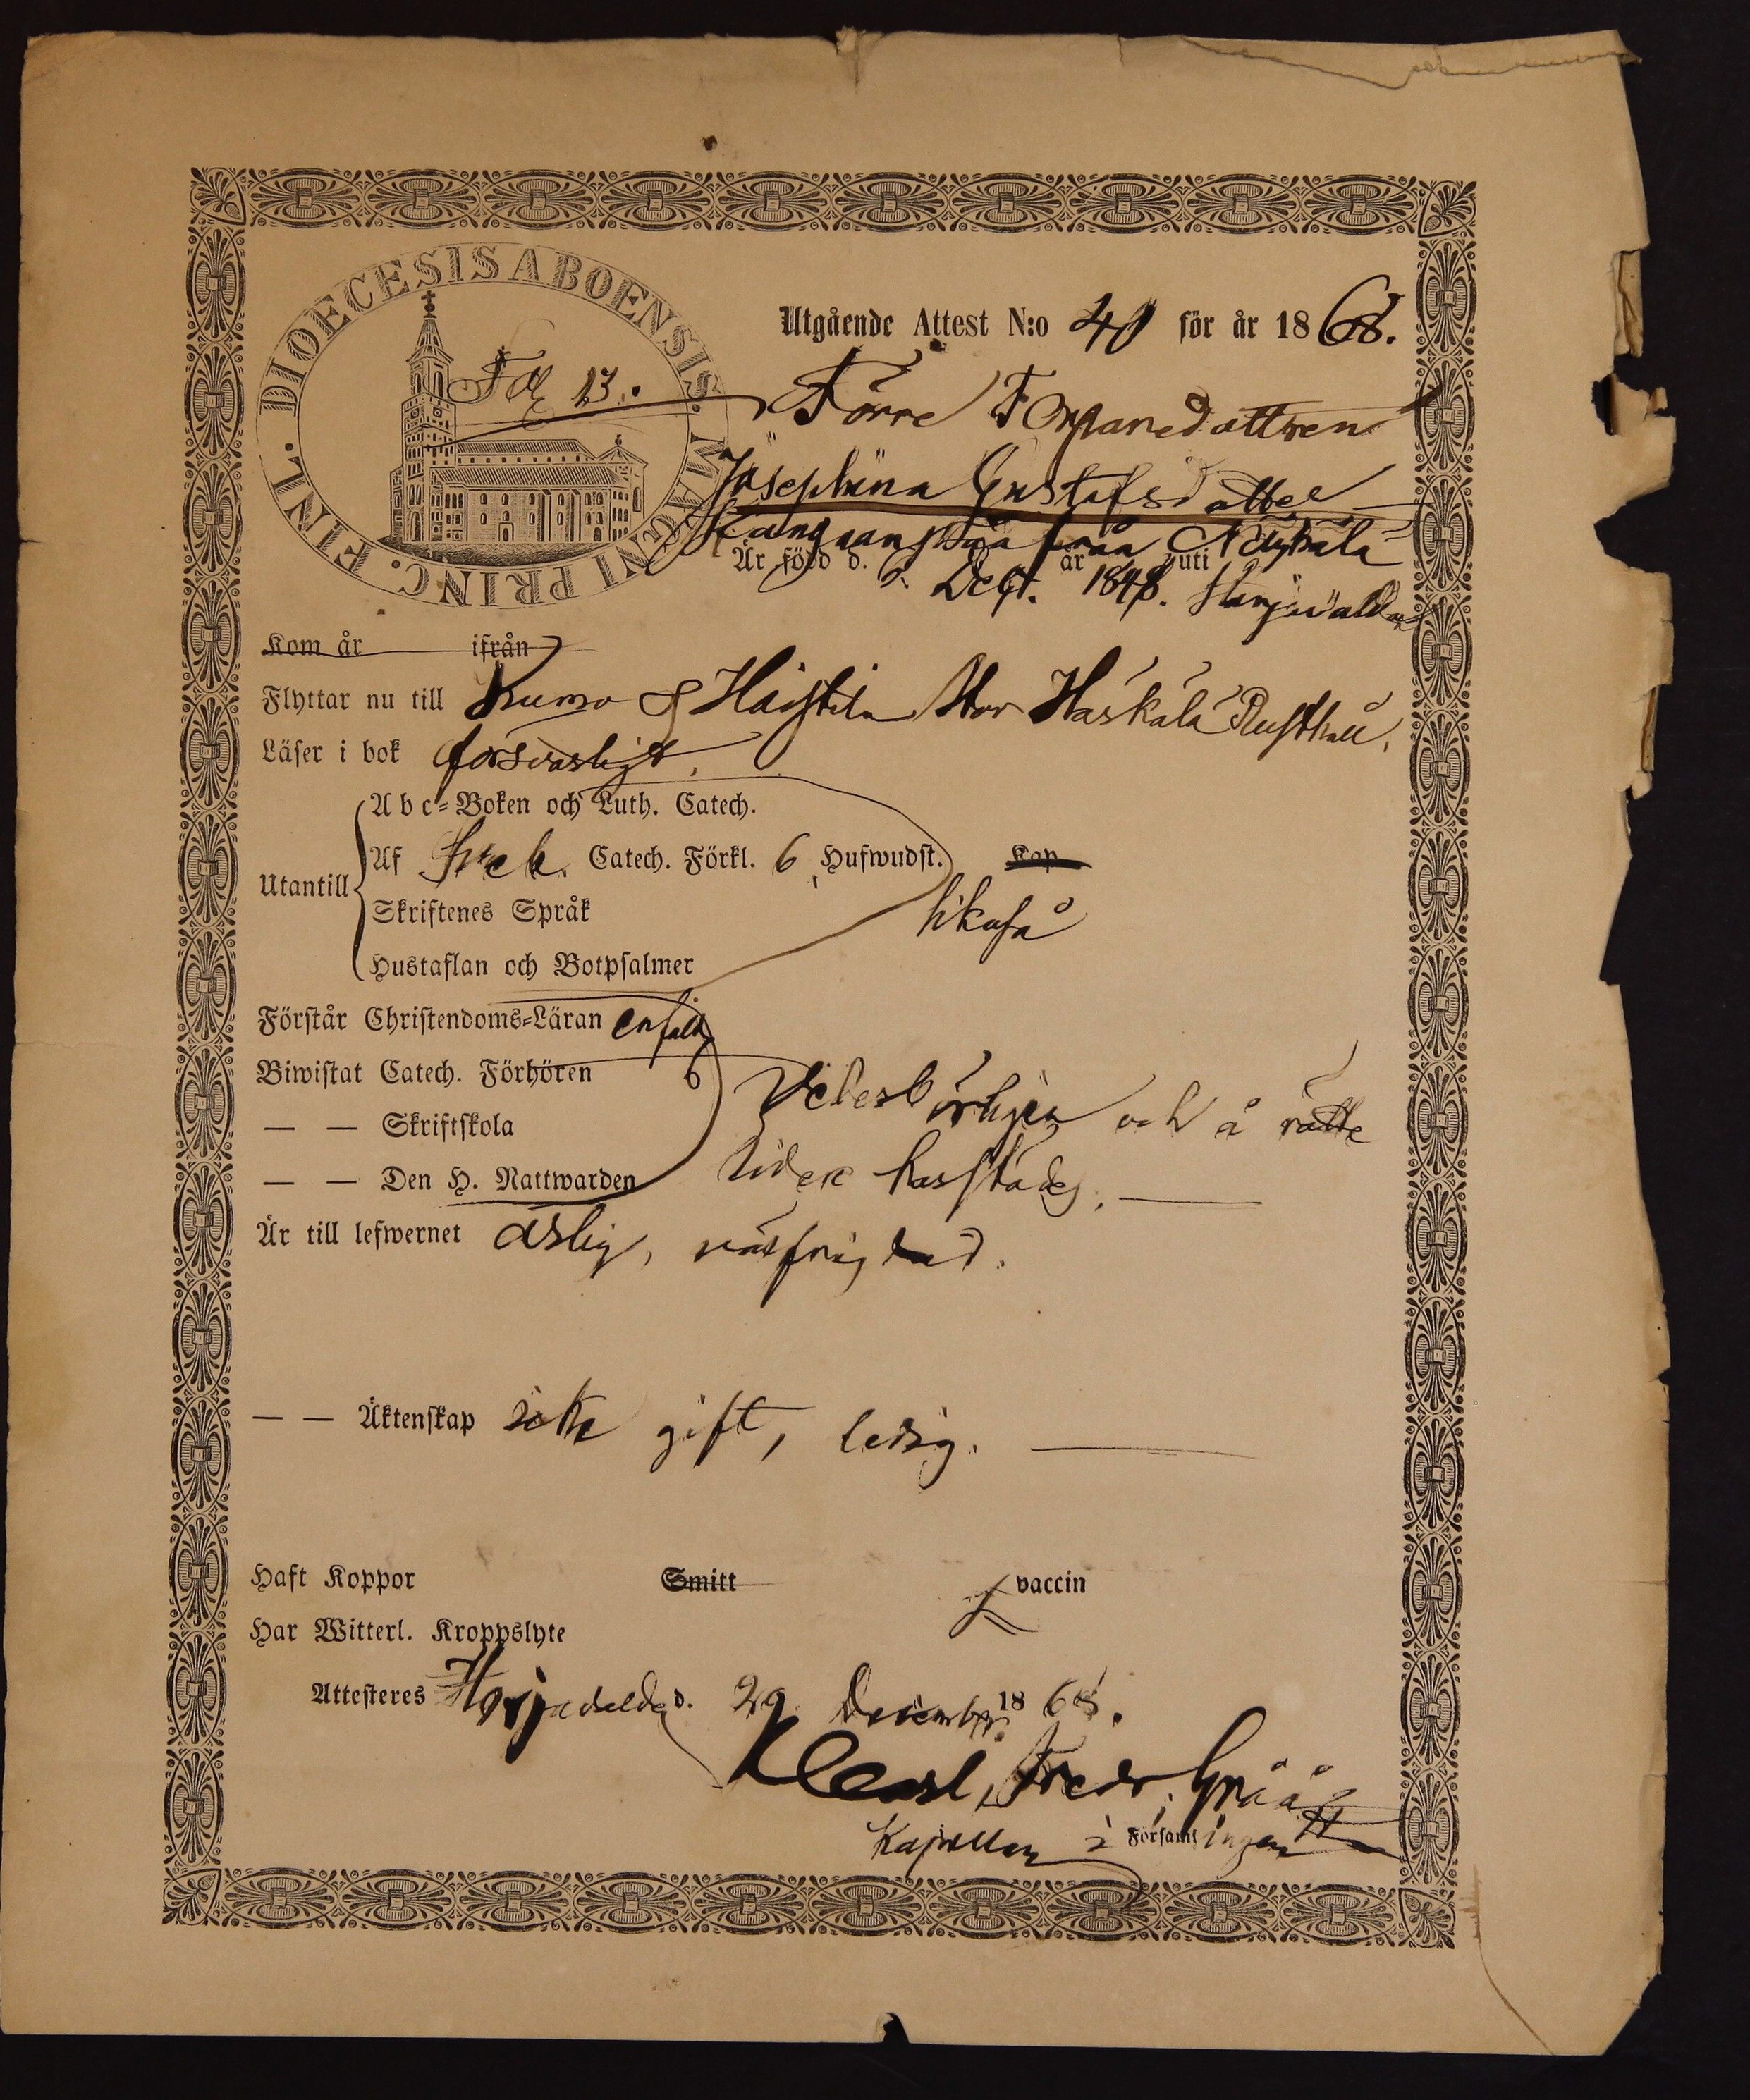 DIOECESIS ABOENSIS. MAGNI PRINC. FINL.
Utgående Attest N:o 40 för år 1868.
Fol 13.
Förre Torparedottren
Josephina Gustafsdotter
från
Är född d. 6 Dec. år 1848. uti Harjavalda
Kom år ifrån
Flyttar nu till Kumo & Haistila Stor Haskala Rusthåll.
Läser i bok försvarligt.
Utantill
Abc-Boken och Luth. Catech.
Af Sveb. Catech. Förkl. 6 Hufwudst. Kap
Skriftenes Språk likaså
Hustaflan och Botpsalmer
Förstår Christendoms-Läran enfald.
Biwistat Catech. Förhören
— — Skriftskola vederbörligen och å rätte
— — Den H. Nattwarden tider
Är till lefwernet ärlig, väl frägdad.
— — Äktenskap icke gift, ledig.
Haft Koppor Smitt vaccin
Har Witterl. Kroppslyte
Attesteres Harjavalda d. 29 December 1868.
Carl Fredr. Grååtz
Kapellan i Församlingen